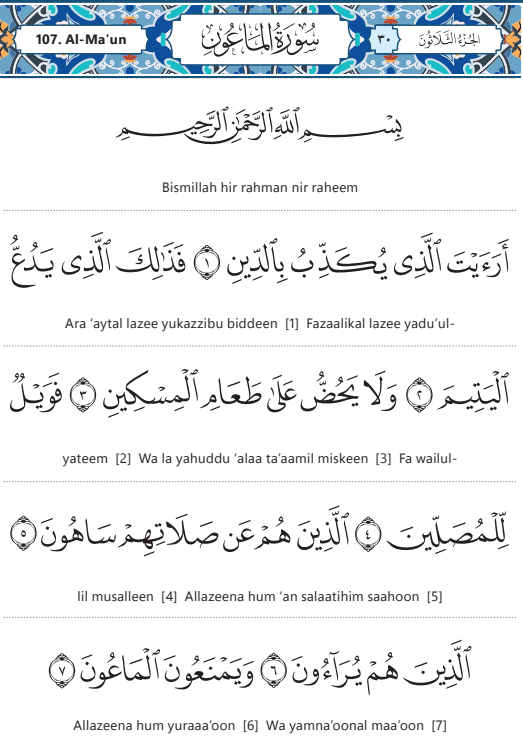 107. Al-Ma'un سُورَةُ المَاعُون ٣٠ الجُزْءُ الثَّلَاثُونَ
بِسْمِ ٱللَّهِ ٱلرَّحْمَٰنِ ٱلرَّحِيمِ
Bismillah hir rahman nir raheem
أَرَءَيْتَ ٱلَّذِى يُكَذِّبُ بِٱلدِّينِ ١ فَذَٰلِكَ ٱلَّذِى يَدُعُّ
Ara ‘aytal lazee yukazzibu biddeen [1] Fazaalikal lazee yadu‘ul-
ٱلْيَتِيمَ ٢ وَلَا يَحُضُّ عَلَىٰ طَعَامِ ٱلْمِسْكِينِ ٣ فَوَيْلٌ
yateem [2] Wa la yahuddu ‘alaa ta‘aamil miskeen [3] Fa wailul-
لِّلْمُصَلِّينَ ٤ ٱلَّذِينَ هُمْ عَن صَلَاتِهِمْ سَاهُونَ ٥
lil musalleen [4] Allazeena hum ‘an salaatihim saahoon [5]
ٱلَّذِينَ هُمْ يُرَآءُونَ ٦ وَيَمْنَعُونَ ٱلْمَاعُونَ ٧
Allazeena hum yuraaa‘oon [6] Wa yamna‘oonal maa‘oon [7]